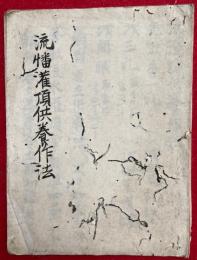 流幡灌頂供養作法